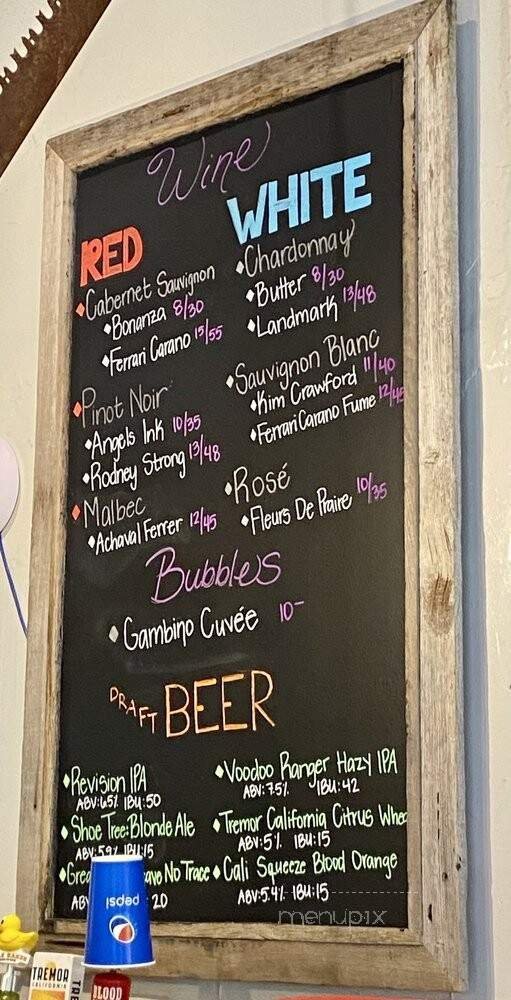 Wine
RED
Cabernet Sauvignon
Bonanza 8/30
Ferrari Carano 15/55
Pinot Noir
Angels Ink 10/35
Rodney Strong 13/48
Malbec
Achaval Ferrer 12/45
WHITE
Chardonnay
Butter 8/30
Landmark 13/48
Sauvignon Blanc
Kim Crawford 11/40
Ferrari Carano Fume 12/45
Rosé
Fleurs De Praire 10/35
Bubbles
Gambino Cuvée 10-
DRAFT BEER
Revision IPA
ABV:6.5% IBU:50
Shoe Tree:Blonde Ale
ABV:5.9% IBU:15
No Trace
20
Voodoo Ranger Hazy IPA
ABV:7.5% IBU:42
Tremor California Citrus
ABV:5% IBU:15
Cali Squeeze Blood Orange
ABV:5.4% IBU:15
pepsi
TREMOR
CALIFORNIA
BLOOD
menupix